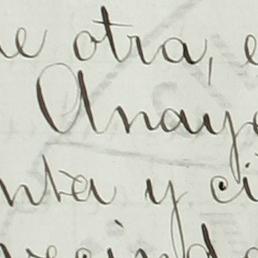 e otra, e
Anaya
nta y ci